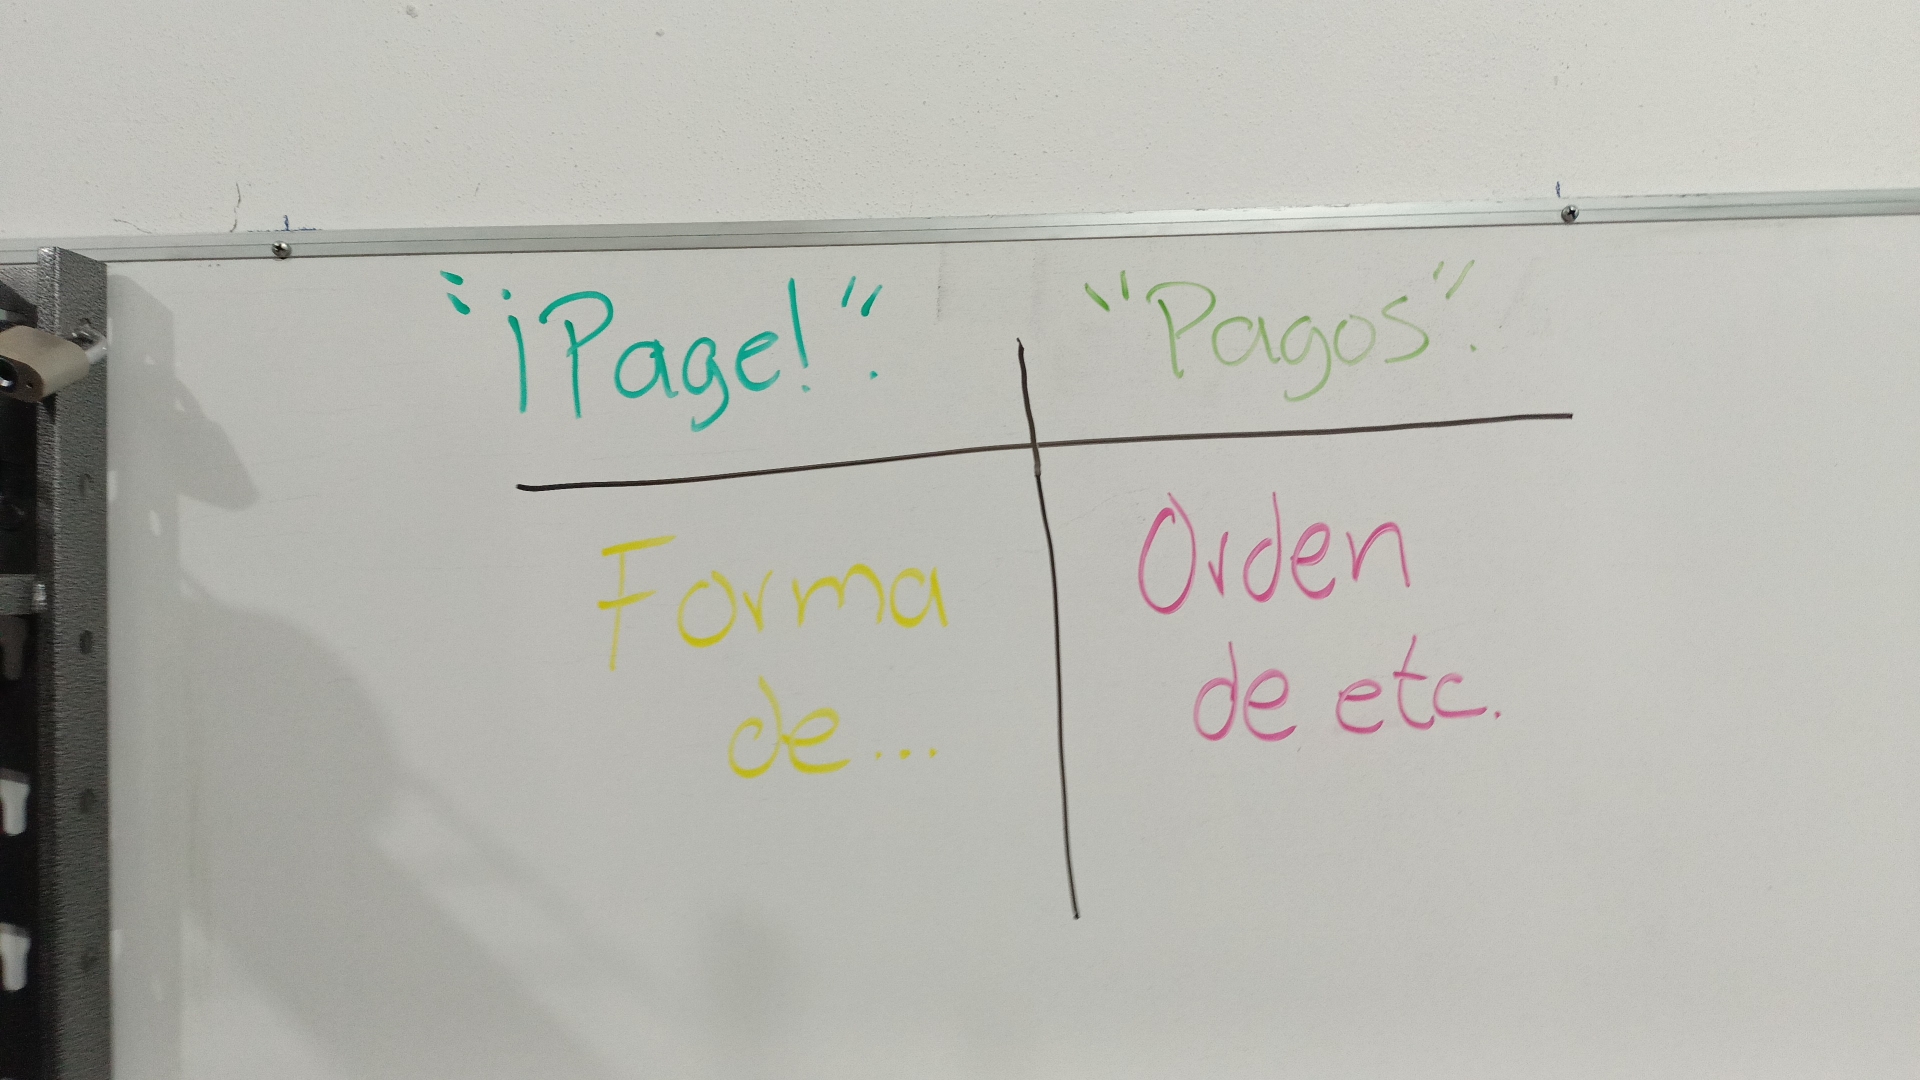 "¡Page!". "Pagos".
Forma Orden
de... de etc.